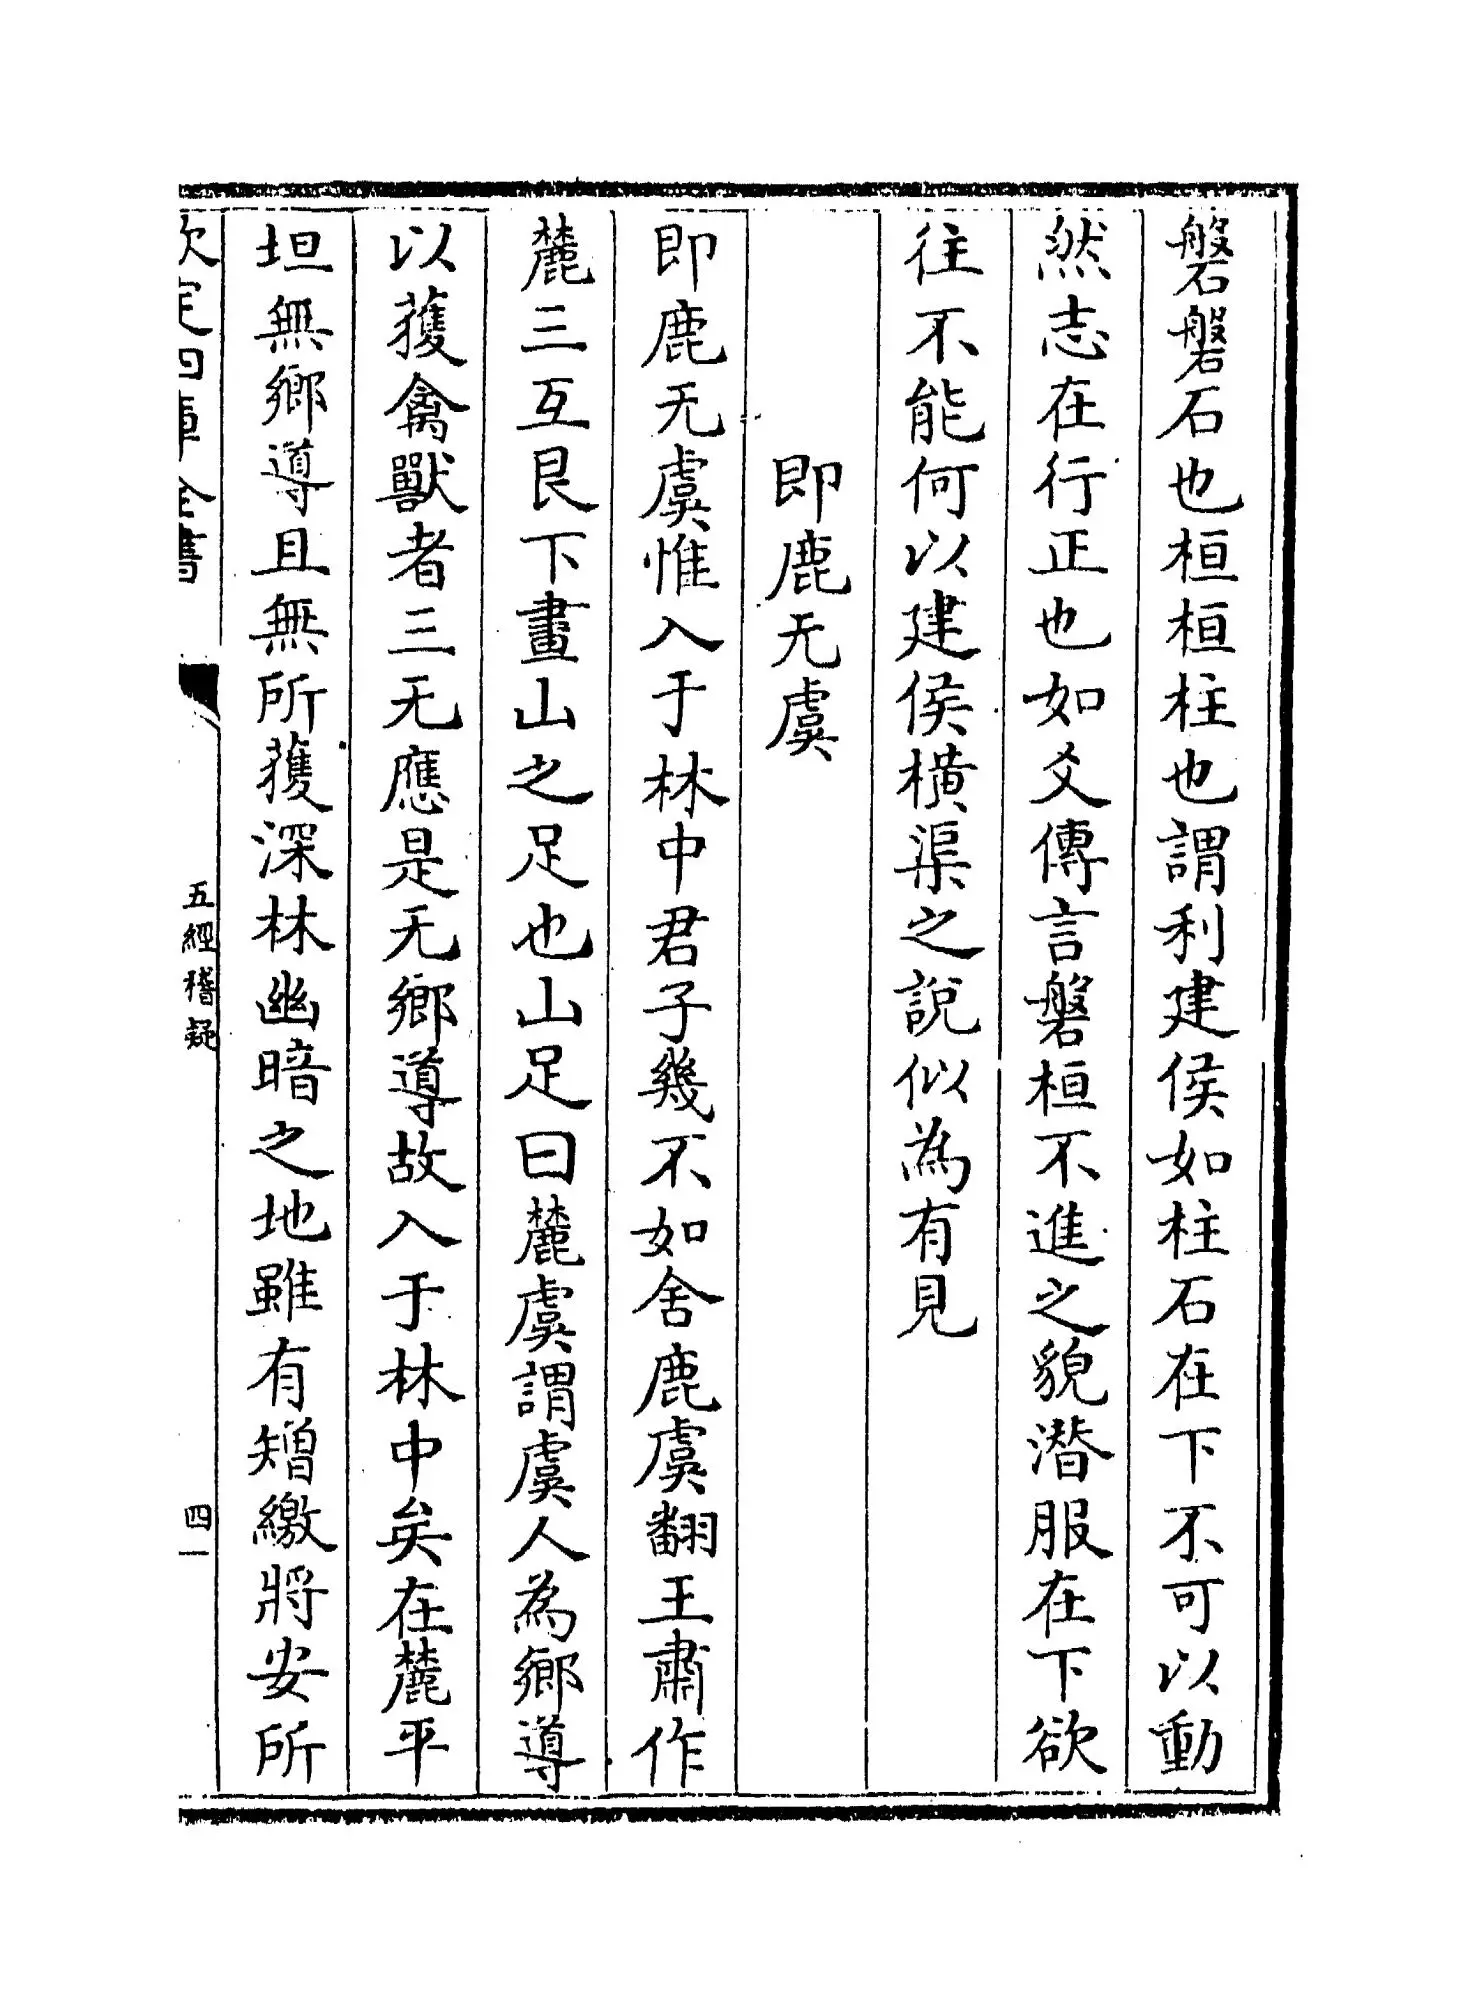 磐磐石也桓桓柱也謂利建侯如柱石在下不可以動
然志在行正也如爻傳言磐桓不進之貌潛服在下欲
往不能何以建侯橫渠之說似為有見
即鹿无虞
即鹿无虞惟入于林中君子幾不如舍鹿虞翻王肅作
麓三互艮下畫山之足也山足曰麓虞謂虞人為鄉導
以獲禽獸者三无應是无鄉導故入于林中矣在麓平
坦無鄉導且無所獲深林幽暗之地雖有矰繳將安所
欽定四庫全書
五經稽疑
四一